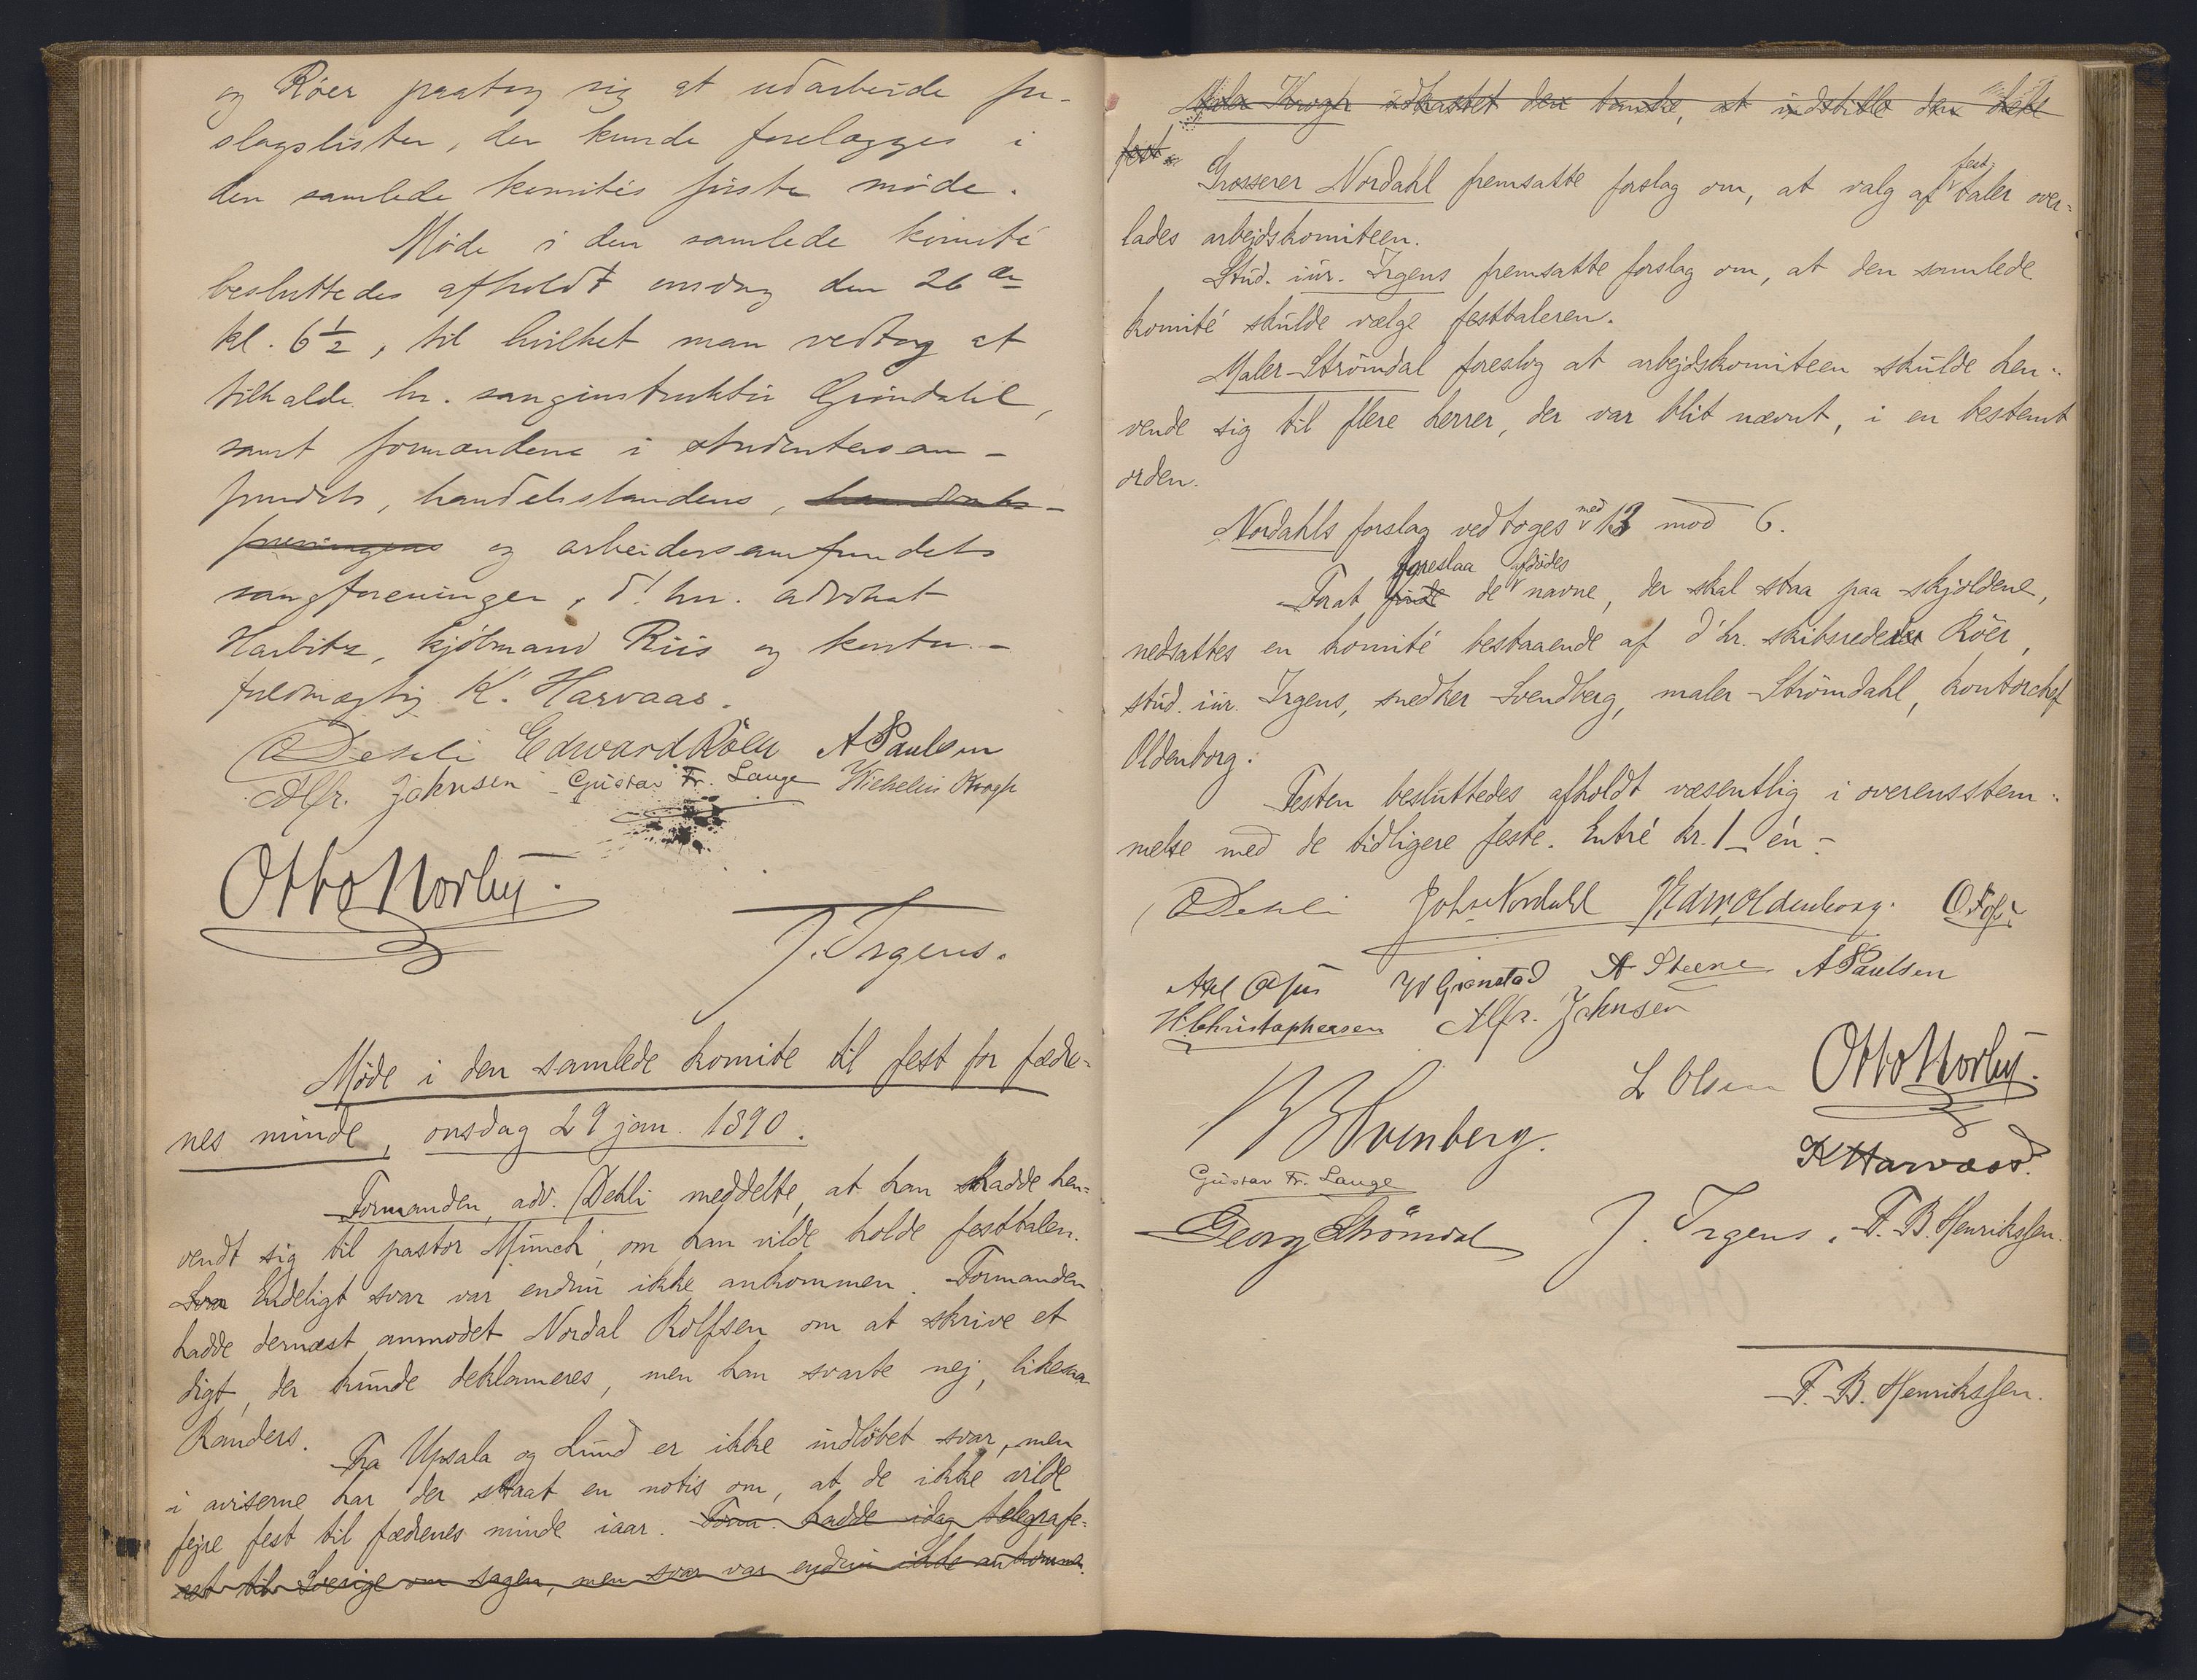 og Röer paatog sig at udarbeide for-
slagslister, der kunde forelægges i
den samlede komités første møde.
Møde i den samlede komité
besluttedes afholdt onsdag den 26de
kl. 6 1/2, til hvilket man vedtog at
tilkalde hr. sanginstruktør Grøndahl,
samt formændene i studentersam-
fundets, handelsstandens, handels-
foreningens og arbeidersamfundets
sangforeninger, d'hrr. advokat
Harbitz, kjøbmand Riis og kontor-
fuldmægtig K. Harvaas.
O Dehli Edward Röer A Paulsen
Alfr. Johnsen Gustav Fr. Lange Wilhelm Krogh
Otto Norby.
J. Irgens.
Møde i den samlede komite til fest for fædre-
nes minde, onsdag 29 jan. 1890.
Formanden, adv. Dehli meddelte, at han hadde hen-
vendt sig til pastor Münch, om han vilde holde festtalen.
Svar Endeligt svar var endnu ikke ankommen. Formanden
hadde dernæst anmodet Nordal Rolfsen om at skrive et
digt, der kunde deklameres, men han svarte nej, likesaa
Randers.
Fra Upsala og Lund er ikke indløbet svar, men
i aviserne har der staat en notis om, at de ikke vilde
fejre fest til fædrenes minde iaar. Form. hadde idag telegrafe-
ret til Sverige om sagen, men svar var endnu ikke ankommen.
Maler Krogh udkastet den tanke, at indstille den hele
fest.
Grosserer Nordahl fremsatte forslag om, at valg af fest-taler over-
lades arbejdskomiteen.
Stud. iur. Irgens fremsatte forslag om, at den samlede
komité skulde vælge festtaleren.
Maler Strömdal foreslog at arbejdskomiteen skulde hen-
vende sig til flere herrer, der var blit nævnt, i en bestemt
orden.
Nordahls forslag vedtoges med 13 mod 6.
Forat finde foreslaa de afdødes navne, der skal staa paa skjoldene,
nedsattes en komité bestaaende af d'hr. skibsreder Röer,
stud. iur. Irgens, snedker Svendberg, maler Strömdahl, kontorchef
Oldenborg.
Festen besluttedes afholdt væsentlig i overensstem-
melse med de tidligere feste. Entré kr. 1 – én –
O Dehli Joh. Nordahl Edw. Oldenborg.
Axel W Grønstad A Steene A Paulsen
H. Christophersen Alfr. Johnsen
L Olsen Otto Norby.
Svenberg.
K Harvaas.
Gustav Fr. Lange
Georg Strömdal J. Irgens. F. B. Henrikssen.
F. B. Henrikssen.